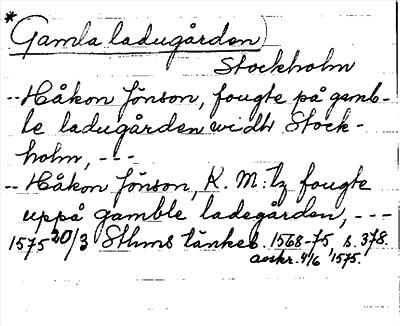 * Gamla ladugården)
Stockholm
-- Håkon Jönson, fougte på gamb-
le ladugården widh Stock-
holm, ---
-- Håkon Jönson, K. M:tz fougte
uppå gamble ladegården, ---
1575 20/3 Sthms tänkeb. 1568-75, s. 378.
avskr. 4/6 1575.